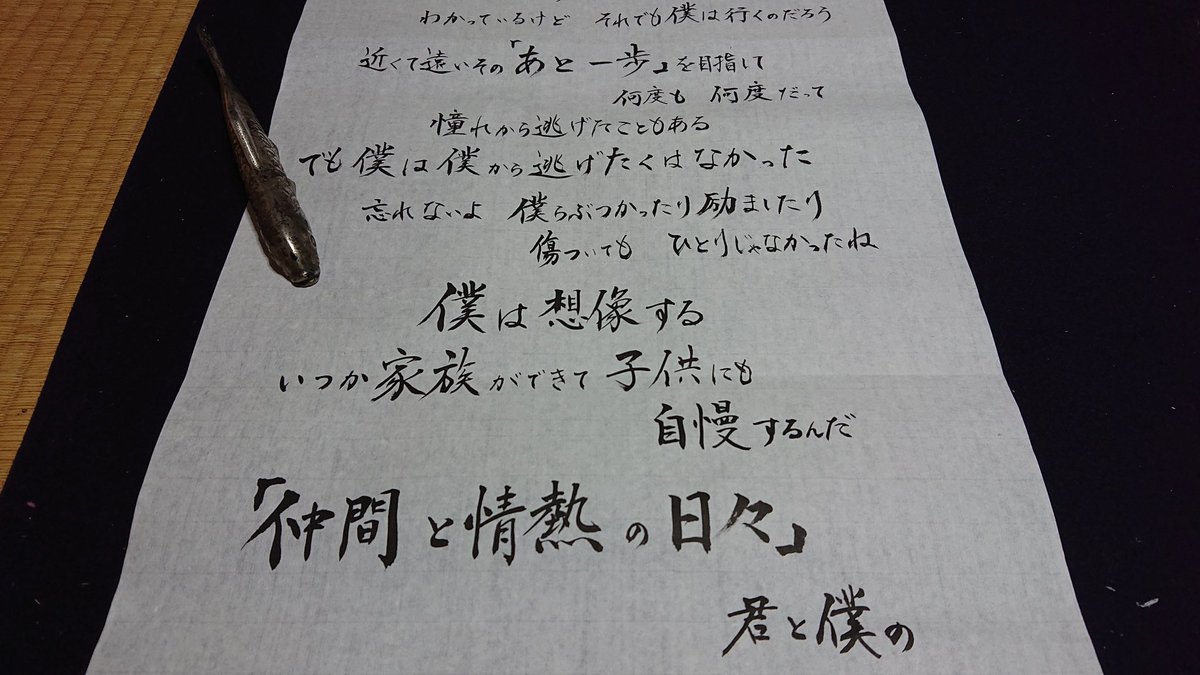 わかっているけど それでも僕は行くのだろう
近くて遠いその「あと一歩」を目指して
何度も 何度だって
憧れから逃げたこともある
でも僕は僕から逃げたくはなかった
忘れないよ 僕らぶつかったり励ましたり
傷ついても ひとりじゃなかったね
僕は想像する
いつか家族ができて子供にも
自慢するんだ
「仲間と情熱の日々」
君と僕の